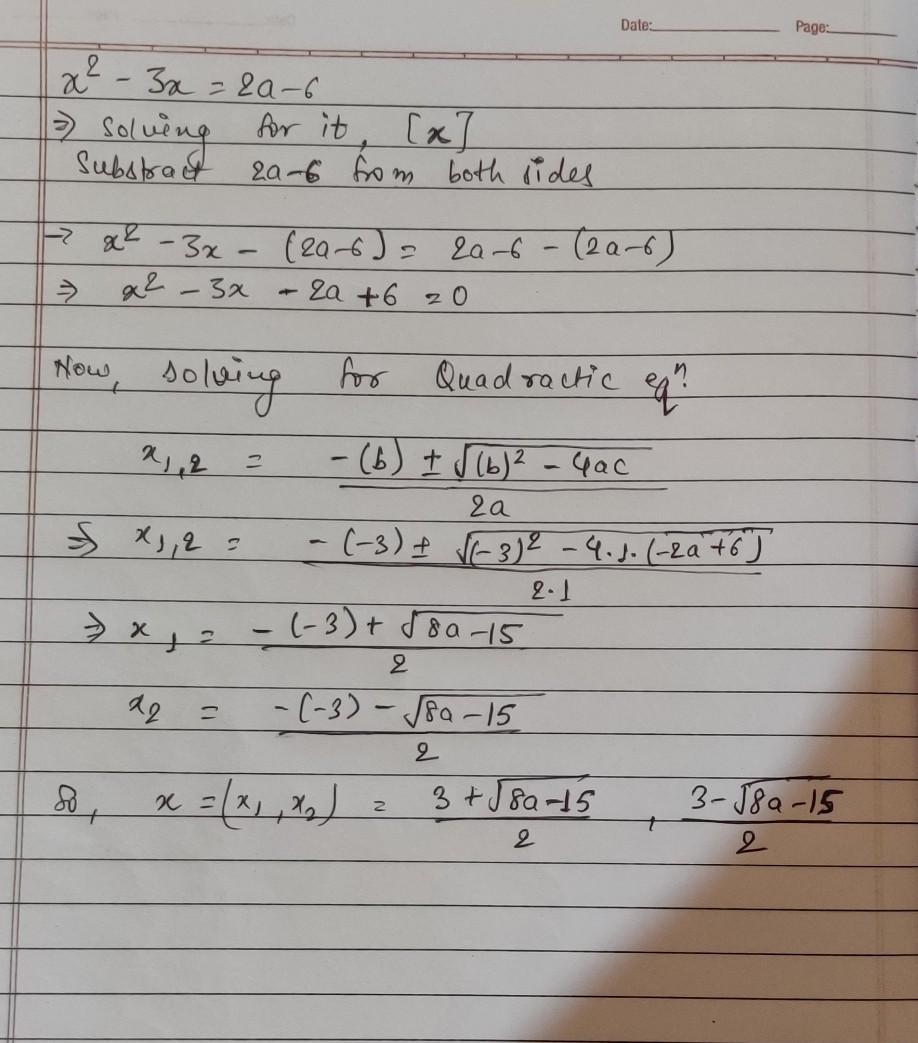 Date: Page:
x² - 3x = 2a-6
⇒ Solving for it, [x]
Substract 2a-6 from both sides
→ x² - 3x - (2a-6) = 2a-6 - (2a-6)
⇒ x² - 3x - 2a + 6 = 0
Now, solving for Quadractic eqⁿ.
x₁,₂ = -(b) ± √(b)² - 4ac / 2a
⇒ x₁,₂ = -(-3) ± √(-3)² - 4.1.(-2a+6) / 2.1
⇒ x₁ = -(-3) + √8a-15 / 2
x₂ = -(-3) - √8a-15 / 2
So, x = (x₁, x₂) = 3+√8a-15 / 2 , 3-√8a-15 / 2